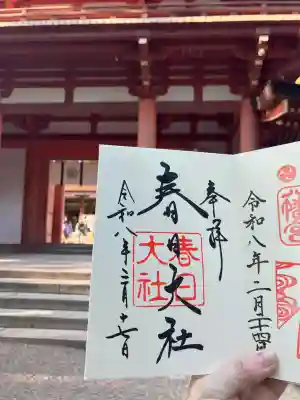 令和八年二月二十四日
奉拝
春日大社
春日大社
令和八年二月十七日